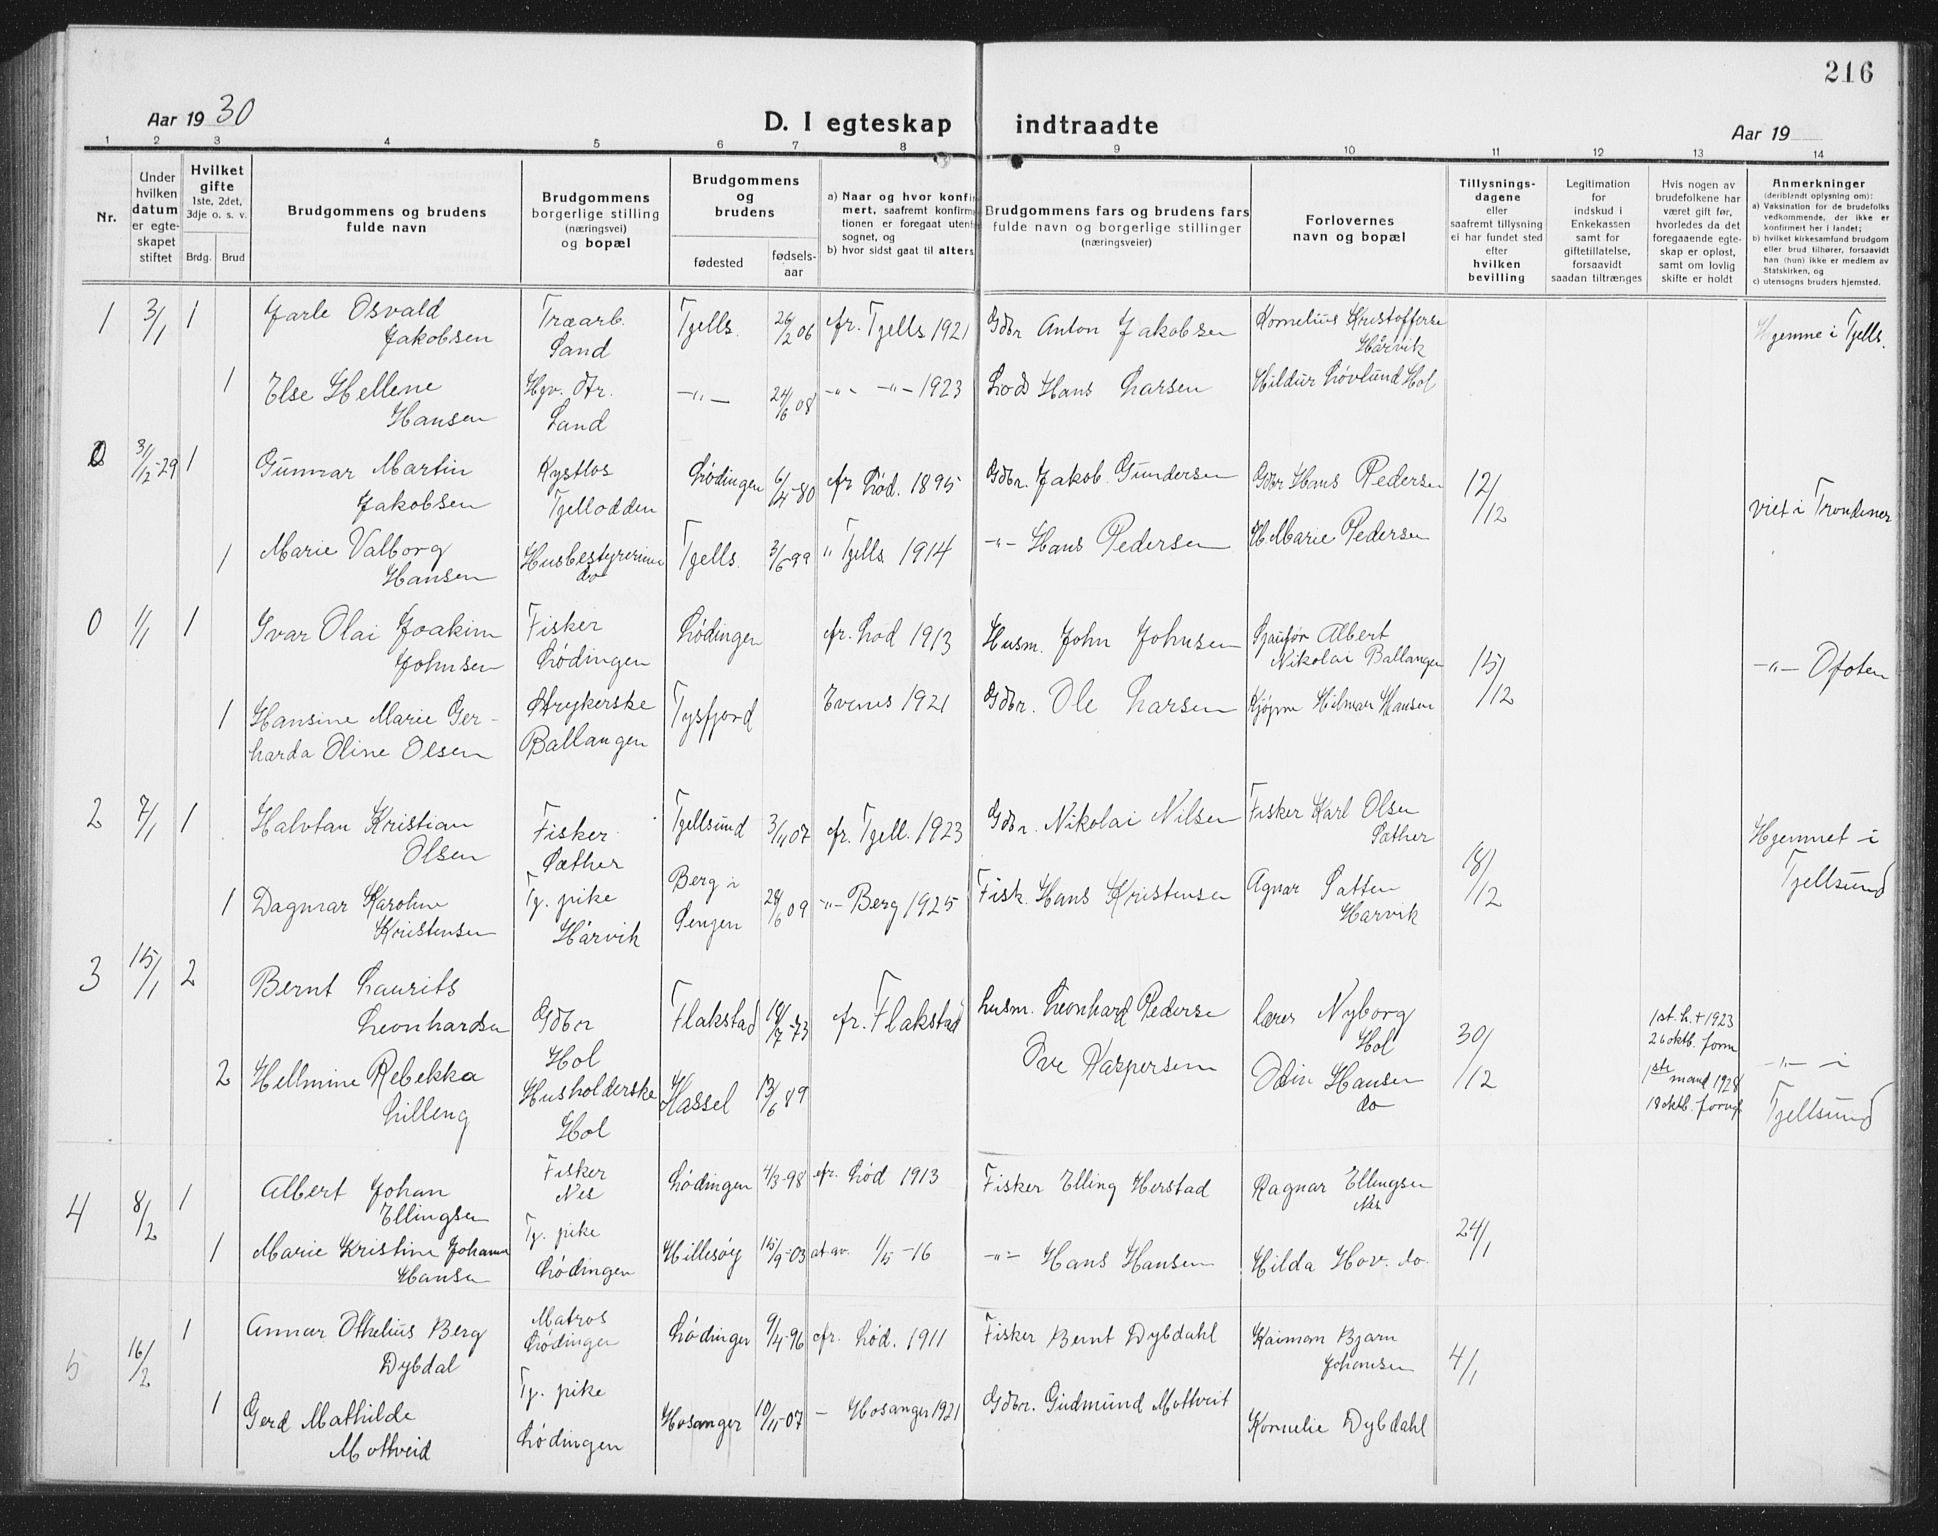 216
Aar 1930
D. I egteskap indtraadte
Aar 19
1 2 3 4 5 6 7 8 9 10 11 12 13 14
Nr.
Under hvilken datum er egteskapet stiftet
Hvilket gifte 1ste, 2det, 3dje o. s. v.
Brdg. Brud
Brudgommens og brudens fulde navn
Brudgommens borgerlige stilling (næringsvei) og bopæl
Brudgommens og brudens
fødested
fødselsaar
a) Naar og hvor konfirmert, saafremt konfirmationen er foregaat utenfor sognet, og
b) hvor sidst gaat til alters
Brudgommens fars og brudens fars fulde navn og borgerlige stillinger (næringsveier)
Forlovernes navn og bopæl
Tillysningsdagene eller saafremt tillysning ei har fundet sted efter hvilken bevilling
Legitimation for indskud i Enkekassen samt for giftetillatelse, forsaavidt saadan tiltrænges
Hvis nogen av brudefolkene har været gift før, hvorledes da det foregaaende egteskap er opløst, samt om lovlig skifte er holdt
Anmerkninger (deriblandt oplysning om):
a) Vaksination for de brudefolks vedkommende, der ikke er konfirmert her i landet;
b) hvilket kirkesamfund brudgom eller brud tilhører, forsaavidt han (hun) ikke er medlem av Statskirken, og
c) utensogns bruders hjemsted.
1 3/1 1 Jarle Osvald Jakobsen Træarb. Sand Tjells. 26/2 06 cfr. Tjells 1921 Gdbr Anton Jakobsen Kornelius Kristofferse Hårvik Hjemme i Tjells.
1 Else Hellene Hansen Sand -"- 24/6 08 -"- -"- 1923 Lods Hans Larsen Hildur Løvlund Hol
0 31/12-29 1 Gunnar Martin Jakobsen Kystlos Tjellodden Lødingen 6/4-80 cfr Lød. 1895 Gdbr. Jakob Gundersen Gdbr Hans Pedersen 12/12 viet i Trondenes
1 Marie Valborg Hansen Husbestyrerinne do Tjells. 3/6 99 " Tjells 1914 -"- Hans Pedersen H. Marie Pedersen
0 1/1 1 Ivar Olai Joakim Johnsen Fisker Lødingen Lødingen cfr. Lød 1913 Husm. John Johnsen Sjaufør Albert Nikolai Ballangen 15/12 -"- Ofoten
1 Hansine Marie Gerharda Oline Olsen Strykerske Ballangen Tysfjord Evenes 1921 Gdbr. Ole Larsen Hilmar Hansen
2 7/1 1 Halvtan Kristian Olsen Fisker Sæther Tjellsund 3/11 07 cfr. Tjell. 1923 Gdbr. Nikolai Nilsen Fisker Karl Olsen Sæther 18/12 Hjemmet i Tjellsund
1 Dagmar Karoline Kristensen Tj. pike Hårvik Berg i Senjen 28/6 09 -"- Berg 1925 Fisk. Hans Kristensen Agnar Satten Hårvik
3 15/1 2 Bernt Laurits Leonhardsen Gdbr Hol Flakstad 18/7-73 cfr. Flakstad husm. Leonhard Pederse lærer Nyborg Hol 30/12 1st. h. + 1923 26 oktb. form -"- i Tjellsund
2 Hellmine Rebekka Lilleng Husholderske Hol Hassel 13/6 89 Ove Kaspersen Odin Hansen do 1ste mand 1928 18 oktb.
4 8/2 1 Albert Johan Ellingsen Fisker Nes Lødingen 4/3-98 cfr. Lød 1913 Fisker Elling Herstad Ragnar Ellingsen Nes 24/1
1 Marie Kristine Johanne Hansen Tj. pike Lødingen Hillesøy 15/9-03 at av. 1/5-16 -"- Hans Hansen Hilda Hov. do.
5 16/2 1 Annar Othelius Berg Dybdal Matros Lødingen Lødingen 9/4-96 cfr. Lød. 1911 Fisker Bernt Dybdahl Kaiman Bjarn Johansen 4/1
1 Gerd Mathilde Mottveid Tj. pike Lødingen Hosanger 10/11-07 - Hosanger 1921 Gdbr. Gudmund Mottveit Kornelie Dybdahl